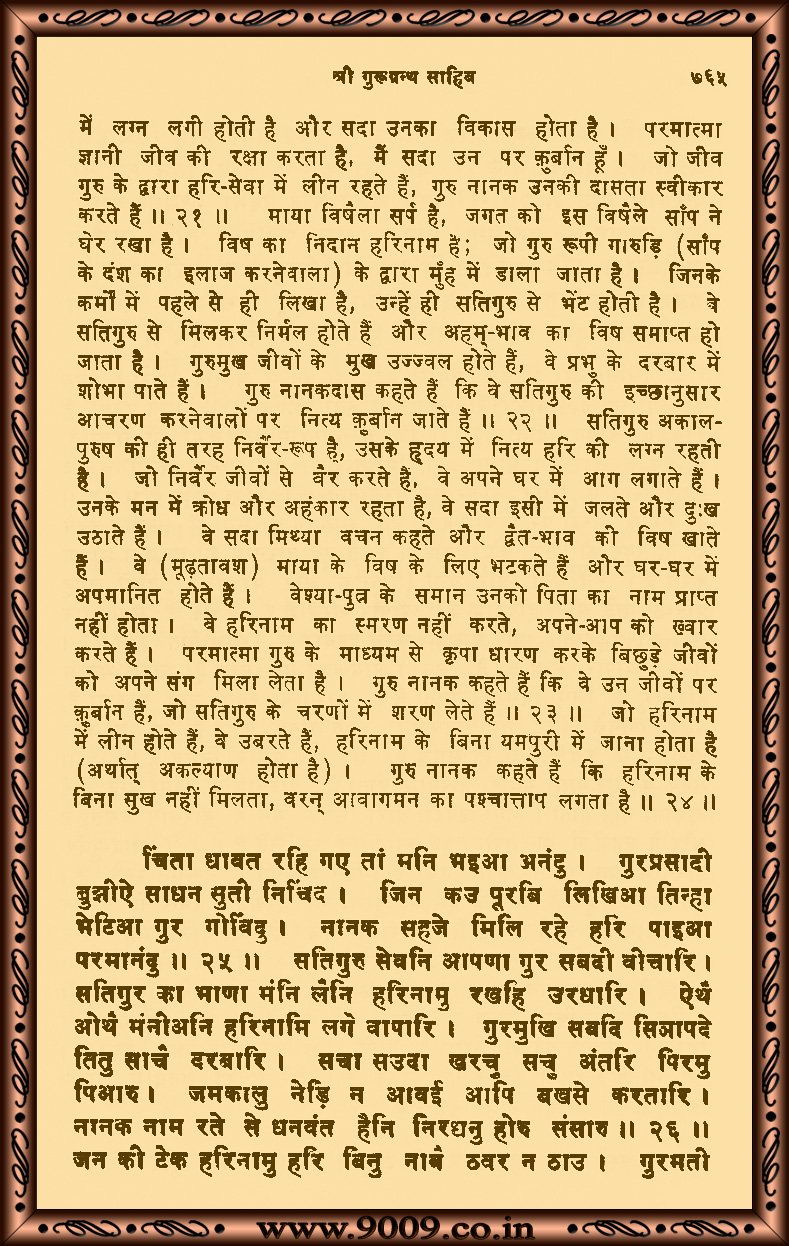 श्री गुरूग्रन्थ साहिब ७६५
में लग्न लगी होती है और सदा उनका विकास होता है । परमात्मा
ज्ञानी जीव की रक्षा करता है, मैं सदा उन पर क़ुर्बान हूँ । जो जीव
गुरु के द्वारा हरि-सेवा में लीन रहते हैं, गुरु नानक उनकी दासता स्वीकार
करते हैं ॥ २१ ॥ माया विषैला सर्प है, जगत को इस विषैले साँप ने
घेर रखा है । विष का निदान हरिनाम है; जो गुरु रूपी गारुड़ि (साँप
के दंश का इलाज करनेवाला) के द्वारा मुँह में डाला जाता है । जिनके
कर्मों में पहले से ही लिखा है, उन्हें ही सतिगुरु से भेंट होती है । वे
सतिगुरु से मिलकर निर्मल होते हैं और अहम्-भाव का विष समाप्त हो
जाता है । गुरुमुख जीवों के मुख उज्ज्वल होते हैं, वे प्रभु के दरबार में
शोभा पाते हैं । गुरु नानकदास कहते हैं कि वे सतिगुरु की इच्छानुसार
आचरण करनेवालों पर नित्य क़ुर्बान जाते हैं ॥ २२ ॥ सतिगुरु अकाल-
पुरुष की ही तरह निर्वैर-रूप है, उसके हृदय में नित्य हरि की लग्न रहती
है । जो निर्वैर जीवों से वैर करते हैं, वे अपने घर में आग लगाते हैं ।
उनके मन में क्रोध और अहंकार रहता है, वे सदा इसी में जलते और दुःख
उठाते हैं । वे सदा मिथ्या वचन कहते और द्वैत-भाव की विष खाते
हैं । वे (मूढ़तावश) माया के विष के लिए भटकते हैं और घर-घर में
अपमानित होते हैं । वेश्या-पुत्र के समान उनको पिता का नाम प्राप्त
नहीं होता । वे हरिनाम का स्मरण नहीं करते, अपने-आप को ख़्वार
करते हैं । परमात्मा गुरु के माध्यम से कृपा धारण करके बिछुड़े जीवों
को अपने संग मिला लेता है । गुरु नानक कहते हैं कि वे उन जीवों पर
क़ुर्बान हैं, जो सतिगुरु के चरणों में शरण लेते हैं ॥ २३ ॥ जो हरिनाम
में लीन होते हैं, वे उबरते हैं, हरिनाम के बिना यमपुरी में जाना होता है
(अर्थात् अकल्याण होता है) । गुरु नानक कहते हैं कि हरिनाम के
बिना सुख नहीं मिलता, वरन् आवागमन का पश्चात्ताप लगता है ॥ २४ ॥
चिंता धावत रहि गए तां मनि भइआ अनंदु । गुरप्रसादी
बुझीऐ साधन सुती निचिंद । जिन कउ पूरबि लिखिआ तिन्हा
भेटिआ गुर गोविंदु । नानक सहजे मिलि रहे हरि पाइआ
परमानंदु ॥ २५ ॥ सतिगुरु सेवनि आपणा गुर सबदी वीचारि ।
सतिगुर का भाणा मंनि लैनि हरिनामु रखहि उरधारि । ऐथै
ओथै मंनीअनि हरिनामि लगे वापारि । गुरमुखि सबदि सिञापदे
तितु साचै दरबारि । सचा सउदा खरचु सचु अंतरि पिरमु
पिआरु । जमकालु नेड़ि न आवई आपि बखसे करतारि ।
नानक नाम रते से धनवंत हैनि निरधनु होरु संसारु ॥ २६ ॥
जन की टेक हरिनामु हरि बिनु नावै ठवर न ठाउ । गुरमती
www.9009.co.in